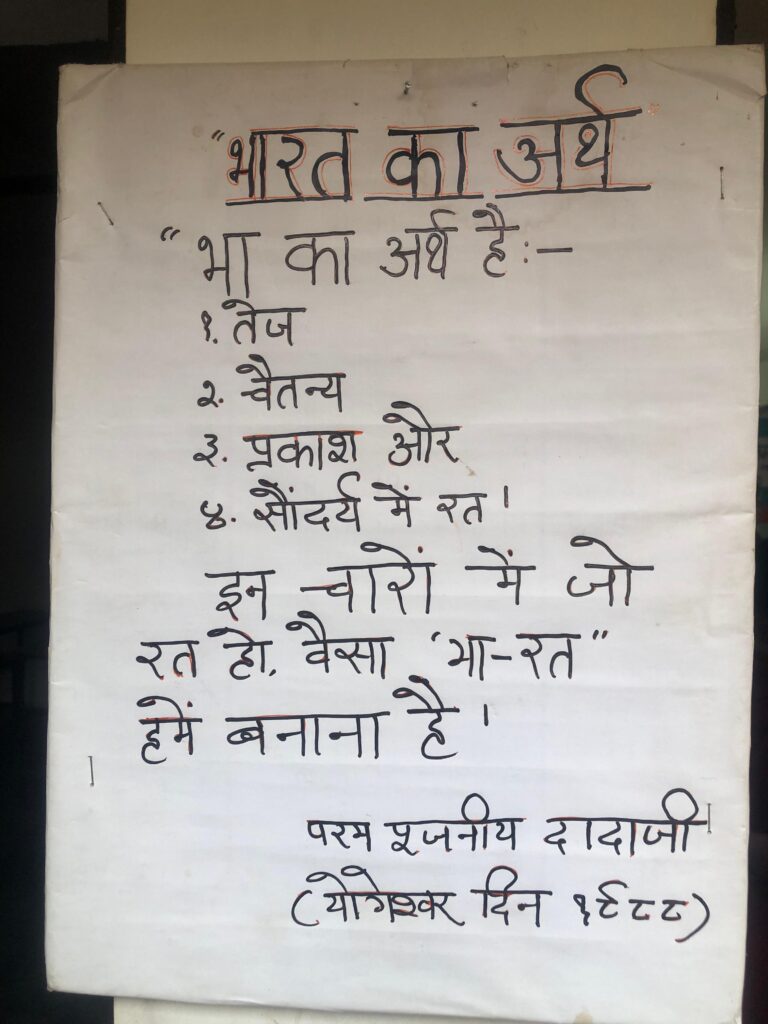 "भारत का अर्थ
"भा का अर्थ है:-
१. तेज
२. चैतन्य
३. प्रकाश और
४. सौंदर्य में रत।
इन चारों में जो
रत हो. वैसा "भा-रत"
हमें बनाना है।
परम पूजनीय दादाजी
(योगेश्वर दिन १९८८)